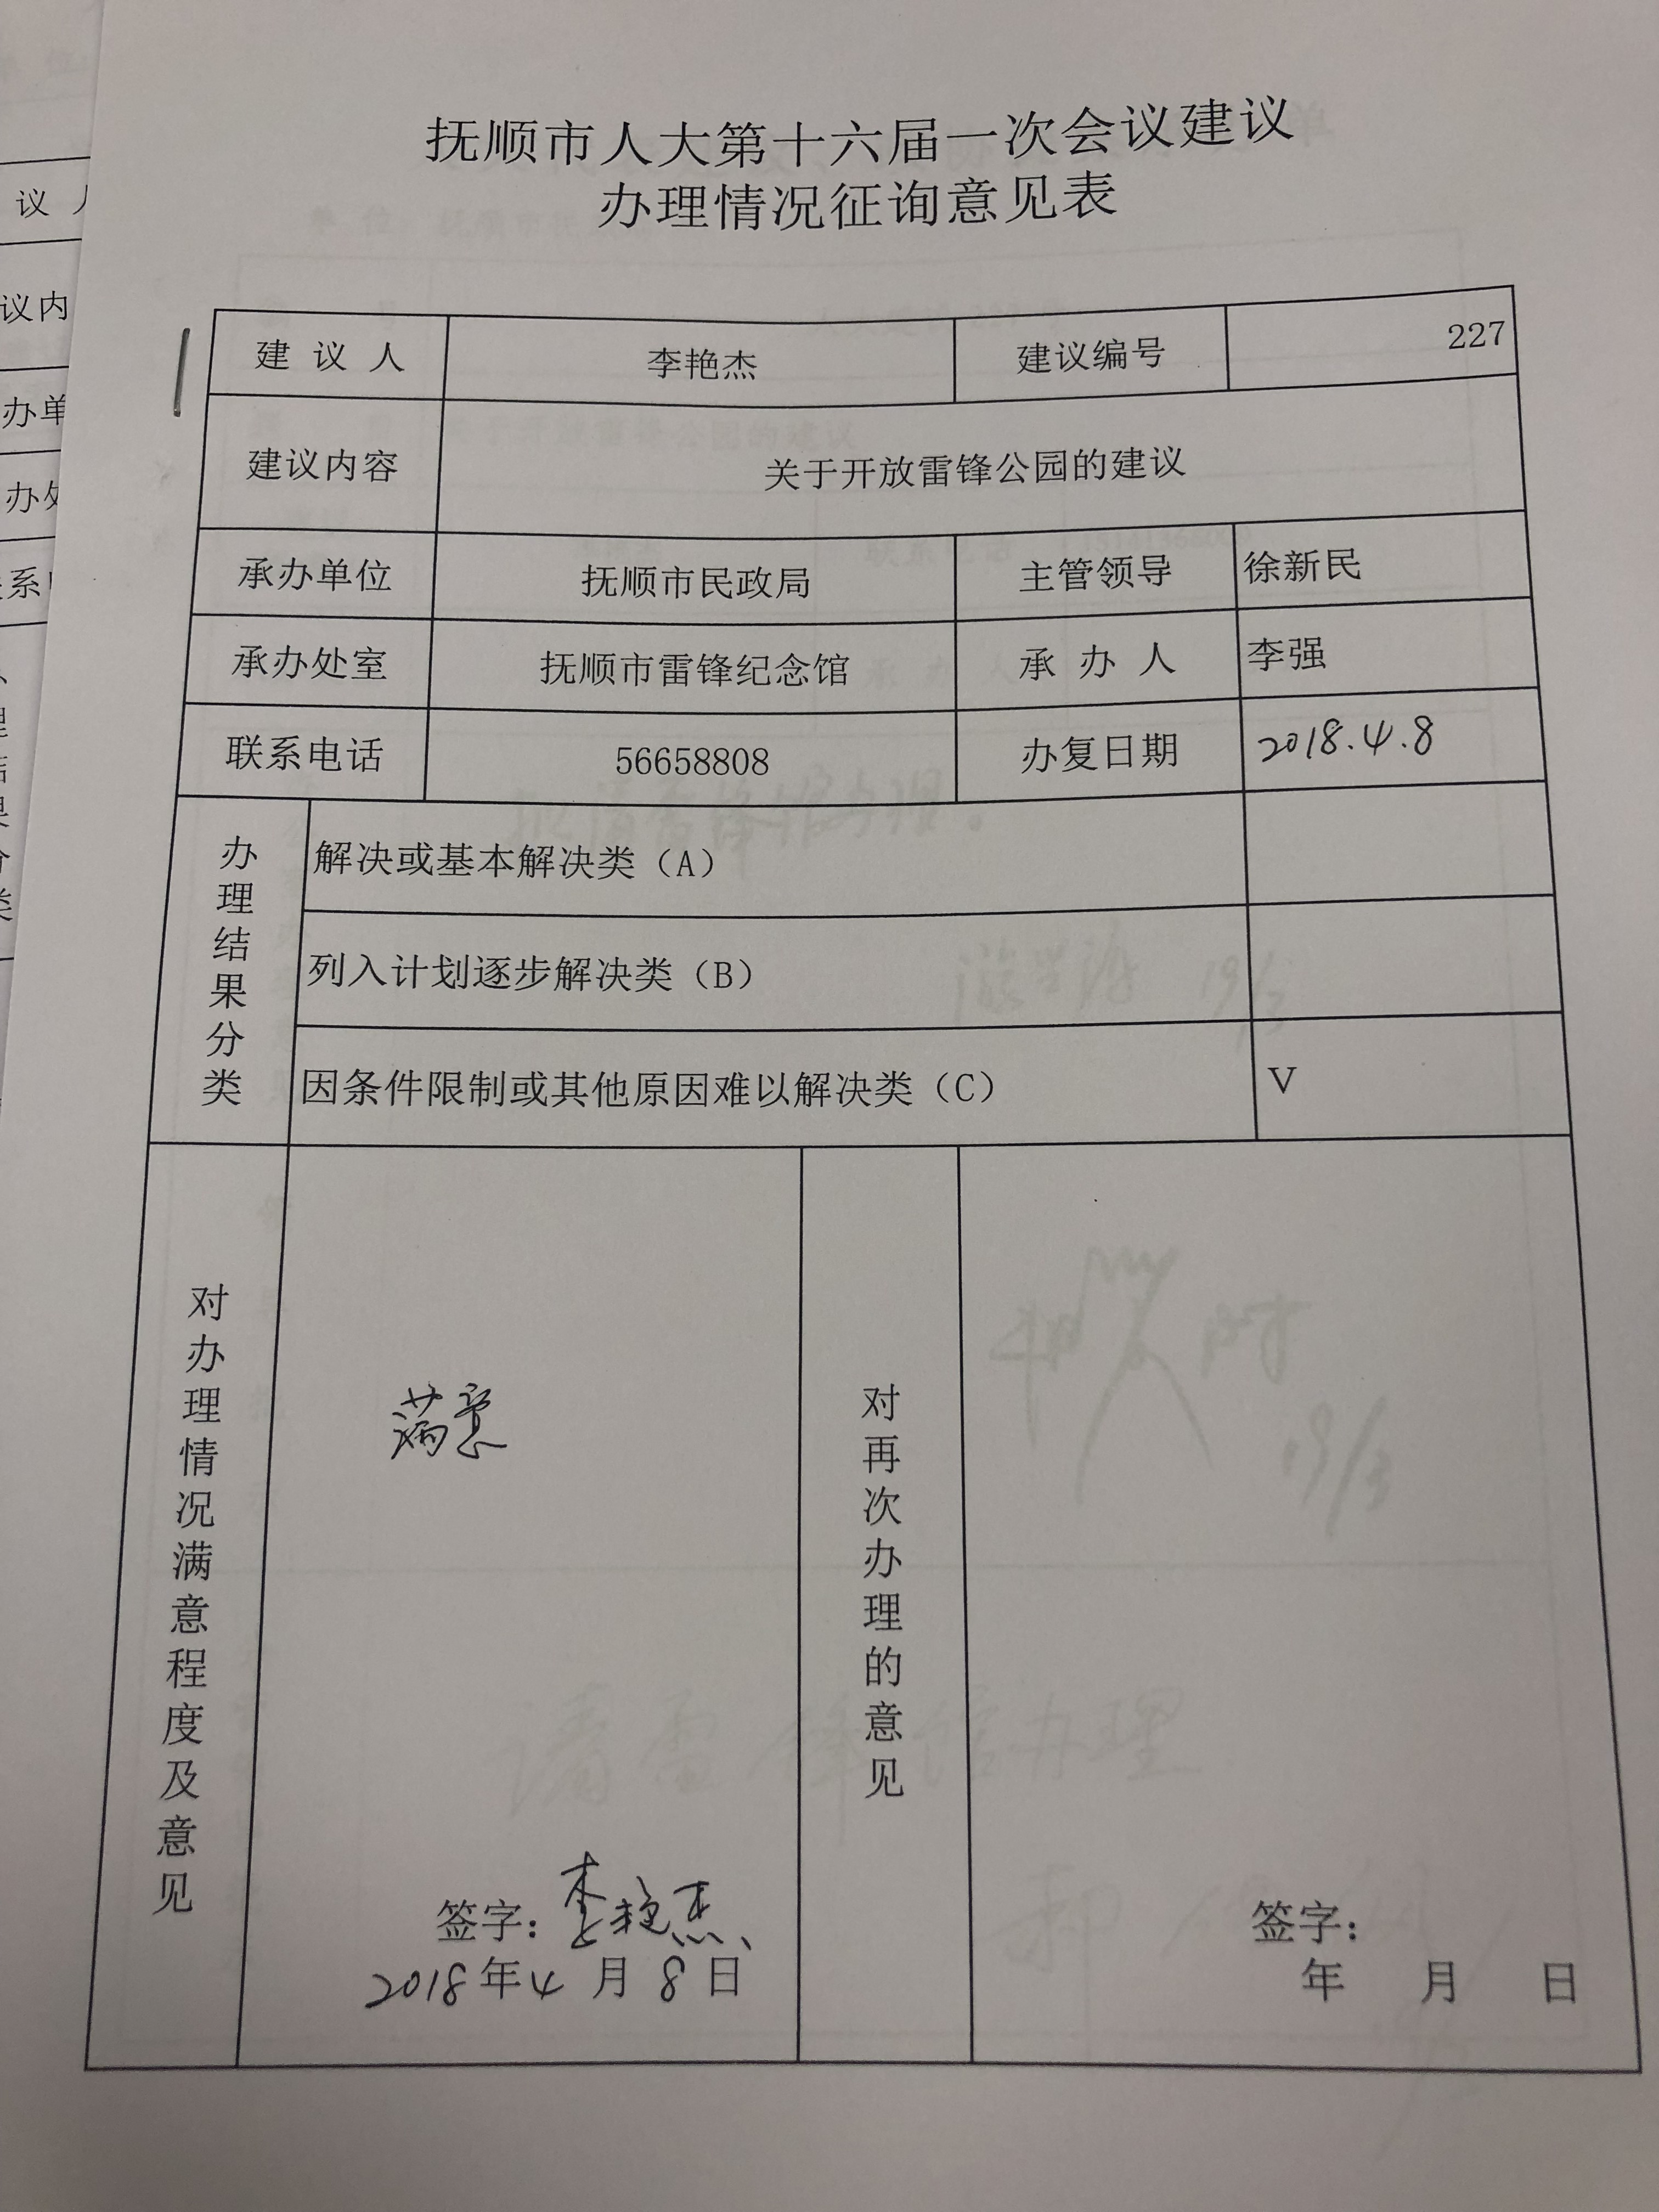 抚顺市人大第十六届一次会议建议
办理情况征询意见表
建 议 人 李艳杰 建议编号 227
建议内容 关于开放雷锋公园的建议
承办单位 抚顺市民政局 主管领导 徐新民
承办处室 抚顺市雷锋纪念馆 承 办 人 李强
联系电话 56658808 办复日期 2018.4.8
办理结果分类
解决或基本解决类（A）
列入计划逐步解决类（B）
因条件限制或其他原因难以解决类（C） V
对办理情况满意程度及意见
满意
签字：李艳杰
2018年4月8日
对再次办理的意见
签字：
年 月 日